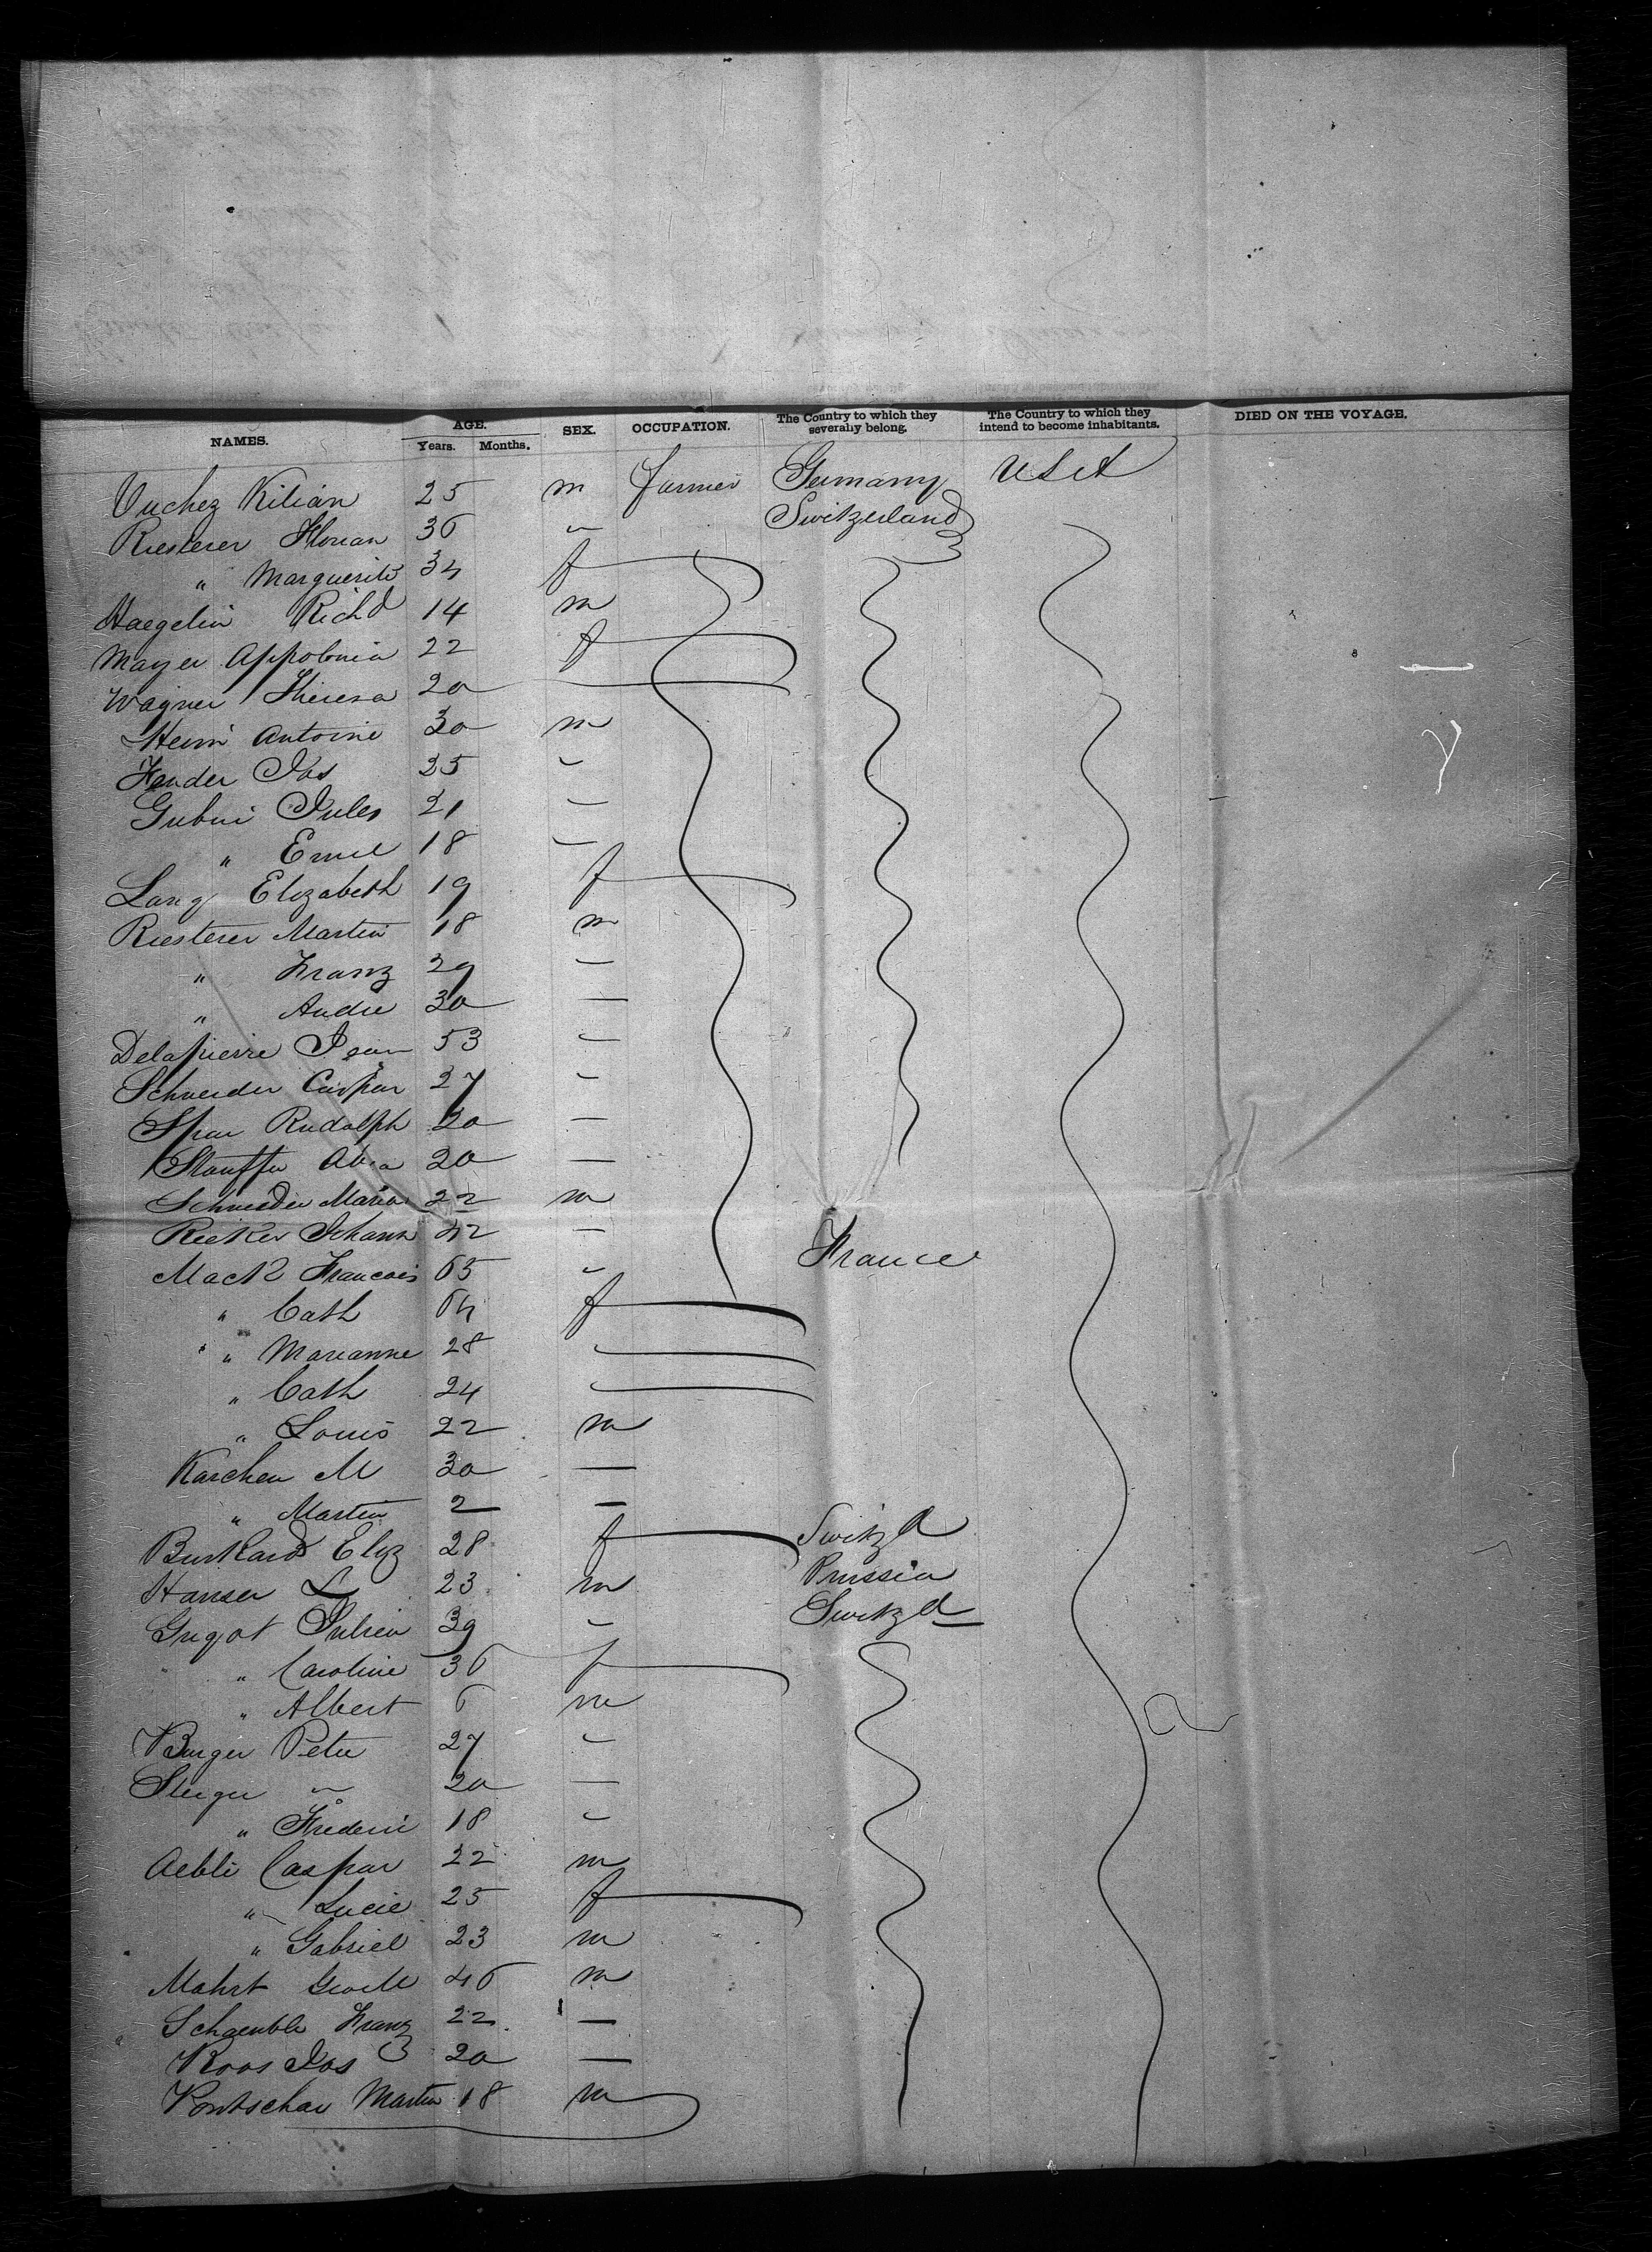 NAMES. AGE. SEX. OCCUPATION. The Country to which they severally belong. The Country to which they intend to become inhabitants. DIED ON THE VOYAGE.
Years. Months.
Vuchez Kilian 25 m farmer Germany USA
Riesterer Florian 36 " Switzerland
" Marguerite 34 f
Haegelin Richd 14 m
Mayer Appolonia 22 f
Wagner Theresa 20
Heim Antoine 30 m
Fender Jos 25 "
Gubni Jules 21 "
" Emil 18 "
Lang Elizabeth 19 f
Riesterer Martin 18 m
" Franz 29 "
" Andre 30 "
Delapierre Jean 53 "
Schneider Caspar 27 "
Rudolph 20 "
Stauffer 20 "
Schneider Maria 22 m
Rieker Johann 42 "
Mack Francois 65 " France
" Cath 64 f
" Marianne 28 "
" Cath 24 "
" Louis 22 m
Karcher M 30 "
" Martin 2 "
Burkard Eliz 28 f Switzd
Hanser L 23 m Prussia
Gugot Julien 39 " Switzd
" Caroline 36 f
" Albert 6 m
Burger Peter 27 "
Steiger " 20 "
" Frederic 18 "
Aebli Caspar 22 m
" Lucie 25 f
" Gabriel 23 m
Mahrt 46 m
Schaeuble Franz 22 "
Roos Jos 20 "
Martin 18 m